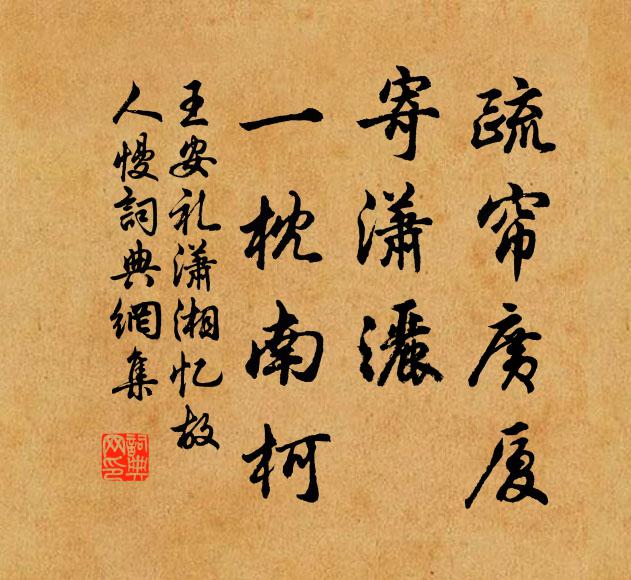 疏帘广厦
寄潇灑
一枕南柯
王安礼潇湘忆故
人慢詞典網集
詞典网印